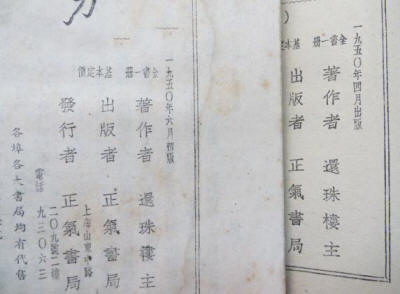 一九五〇年四月出版
全書一冊
著作者　還珠樓主
出版者　正氣書局
一九五〇年六月初版
全書一冊　基本定價
著作者　還珠樓主
出版者　正氣書局
上海山東中路
二〇九號二樓
發行者　正氣書局
電話
九三〇六三
各埠各大書局均有代售